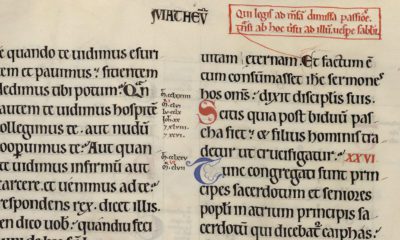 MATHEV̄
e quando te uidimus esuri
et pauimus? sitientem
dedimus tibi potum? Qn̄
autem te uidimus hospitē
collegimus te. aut nudū
cooperuimus te? Aut quan
te uidimus infirmū aut
carcere. et uenimus ad te?
respondens rex. dicet illis.
en dico uob̄. quandiu feci
Qui legis ad dimissa passiōe.
ab hoc ad illū. uespe sabbi.
uitam eternam. Et factum ē
cum consūmasset ihc sermones
hos omnes. dixit discipulis suis.
Scitis quia post biduū pas
cha fiet? et filius hominis tra
detur ut crucifigatur. XXVI
Tunc congregati sunt prin
cipes sacerdotum et seniores
populi in atrium principis sa
cerdotum qui dicebat̄ caiphas.